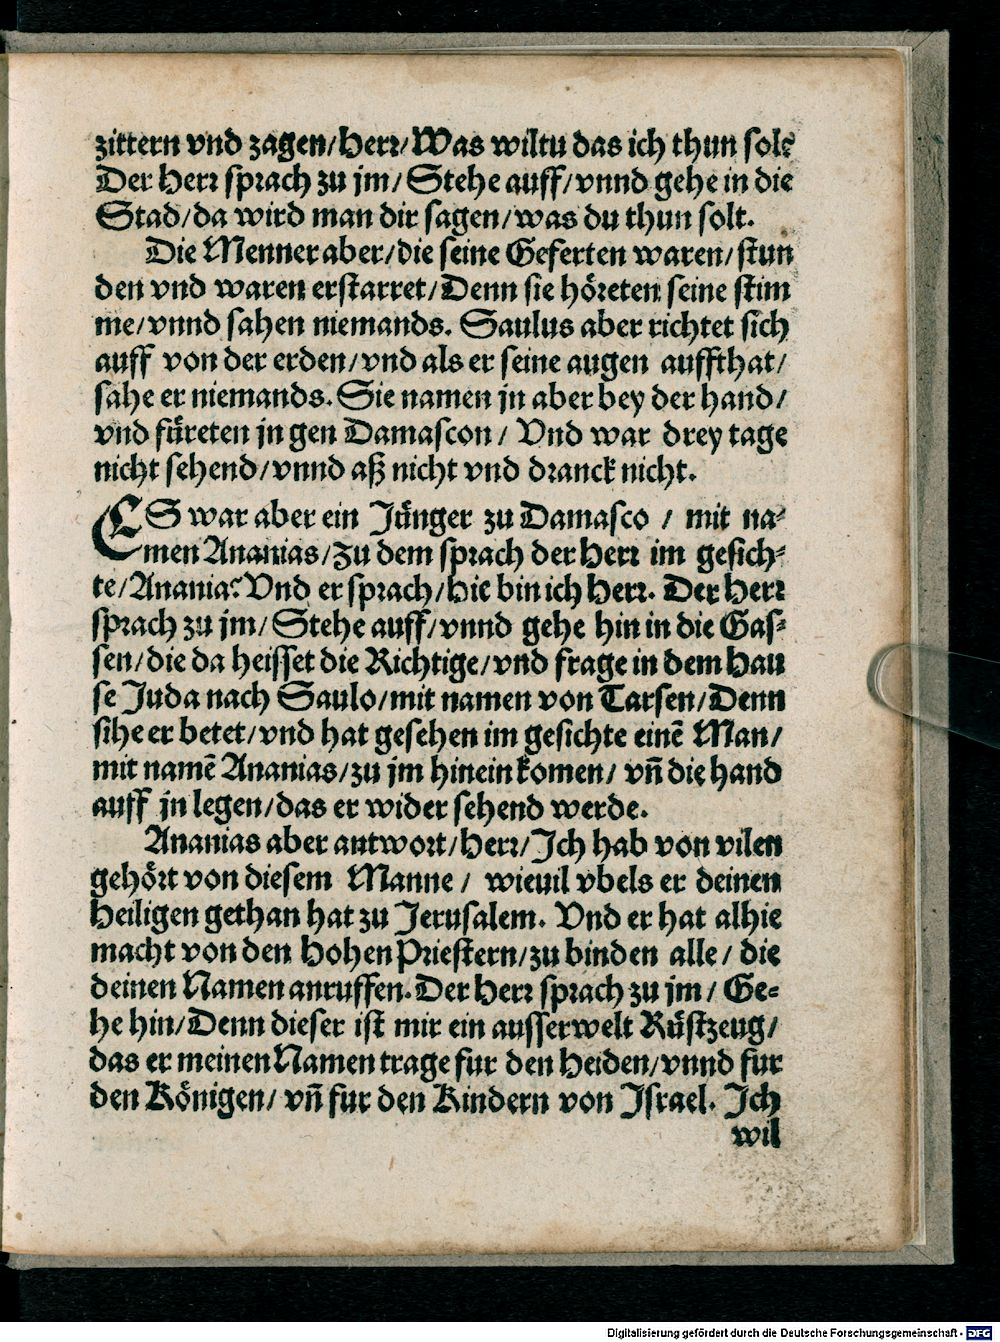 zittern vnd zagen/Herr/Was wiltu das ich thun sol?
Der Herr sprach zu jm/ Stehe auff/vnnd gehe in die
Stad/da wird man dir sagen/was du thun solt.
Die Menner aber/die seine Geferten waren/stun
den vnd waren erstarret/Denn sie höreten seine stim
me/vnnd sahen niemands. Saulus aber richtet sich
auff von der erden/vnd als er seine augen auffthat/
sahe er niemands. Sie namen jn aber bey der hand/
vnd füreten jn gen Damascon/ Vnd war drey tage
nicht sehend/vnnd aß nicht vnd dranck nicht.
ES war aber ein Jünger zu Damasco / mit na-
men Ananias/Zu dem sprach der Herr im gesich-
te/Anania? Vnd er sprach/Hie bin ich Herr. Der Herr
sprach zu jm/ Stehe auff/vnnd gehe hin in die Gas-
sen/die da heisset die Richtige/vnd frage in dem Hau
se Juda nach Saulo/mit namen von Tarsen/Denn
sihe er betet/vnd hat gesehen im gesichte einē Man/
mit namē Ananias/zu jm hinein komen/ vñ die hand
auff jn legen/das er wider sehend werde.
Ananias aber antwort/Herr/Ich hab von vilen
gehört von diesem Manne / wieuil vbels er deinen
Heiligen gethan hat zu Jerusalem. Vnd er hat alhie
macht von den Hohen Priestern/zu binden alle/ die
deinen Namen anruffen. Der Herr sprach zu jm/ Ge-
he hin/Denn dieser ist mir ein ausserwelt Rüstzeug/
das er meinen Namen trage fur den Heiden/vnnd fur
den Königen/ vñ fur den Kindern von Israel. Ich
wil
Digitalisierung gefördert durch die Deutsche Forschungsgemeinschaft - DFG